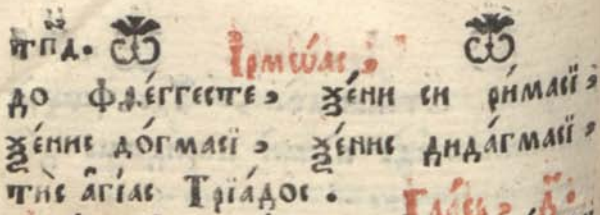 тп҃д. Ірмѡ́лс ,
до фле́ггесте , ѯе́ни си ри́масї ,
ѯе́нис до́гмасї , ѯе́нис дида́гмасї ,
ти̑с а҆гі́ас Трїа́дос .
Гла́съ , д҃ .